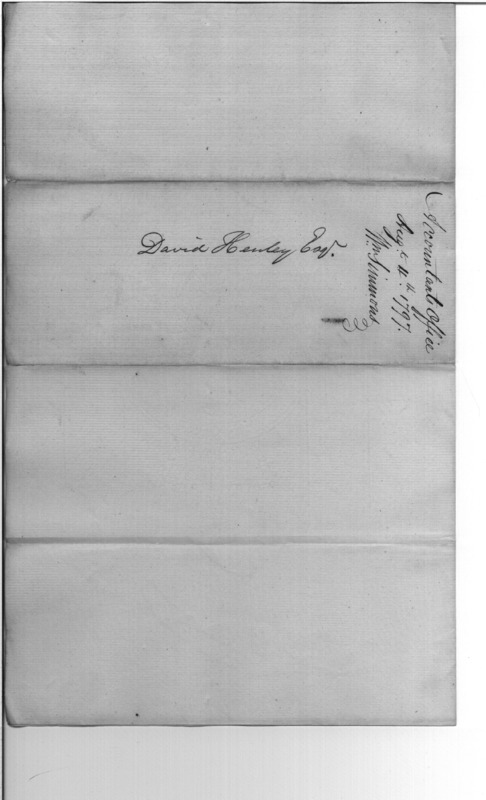 David Henley Esqr.
Accountants Office
Augt. 4th 1797.
Wm Simmons